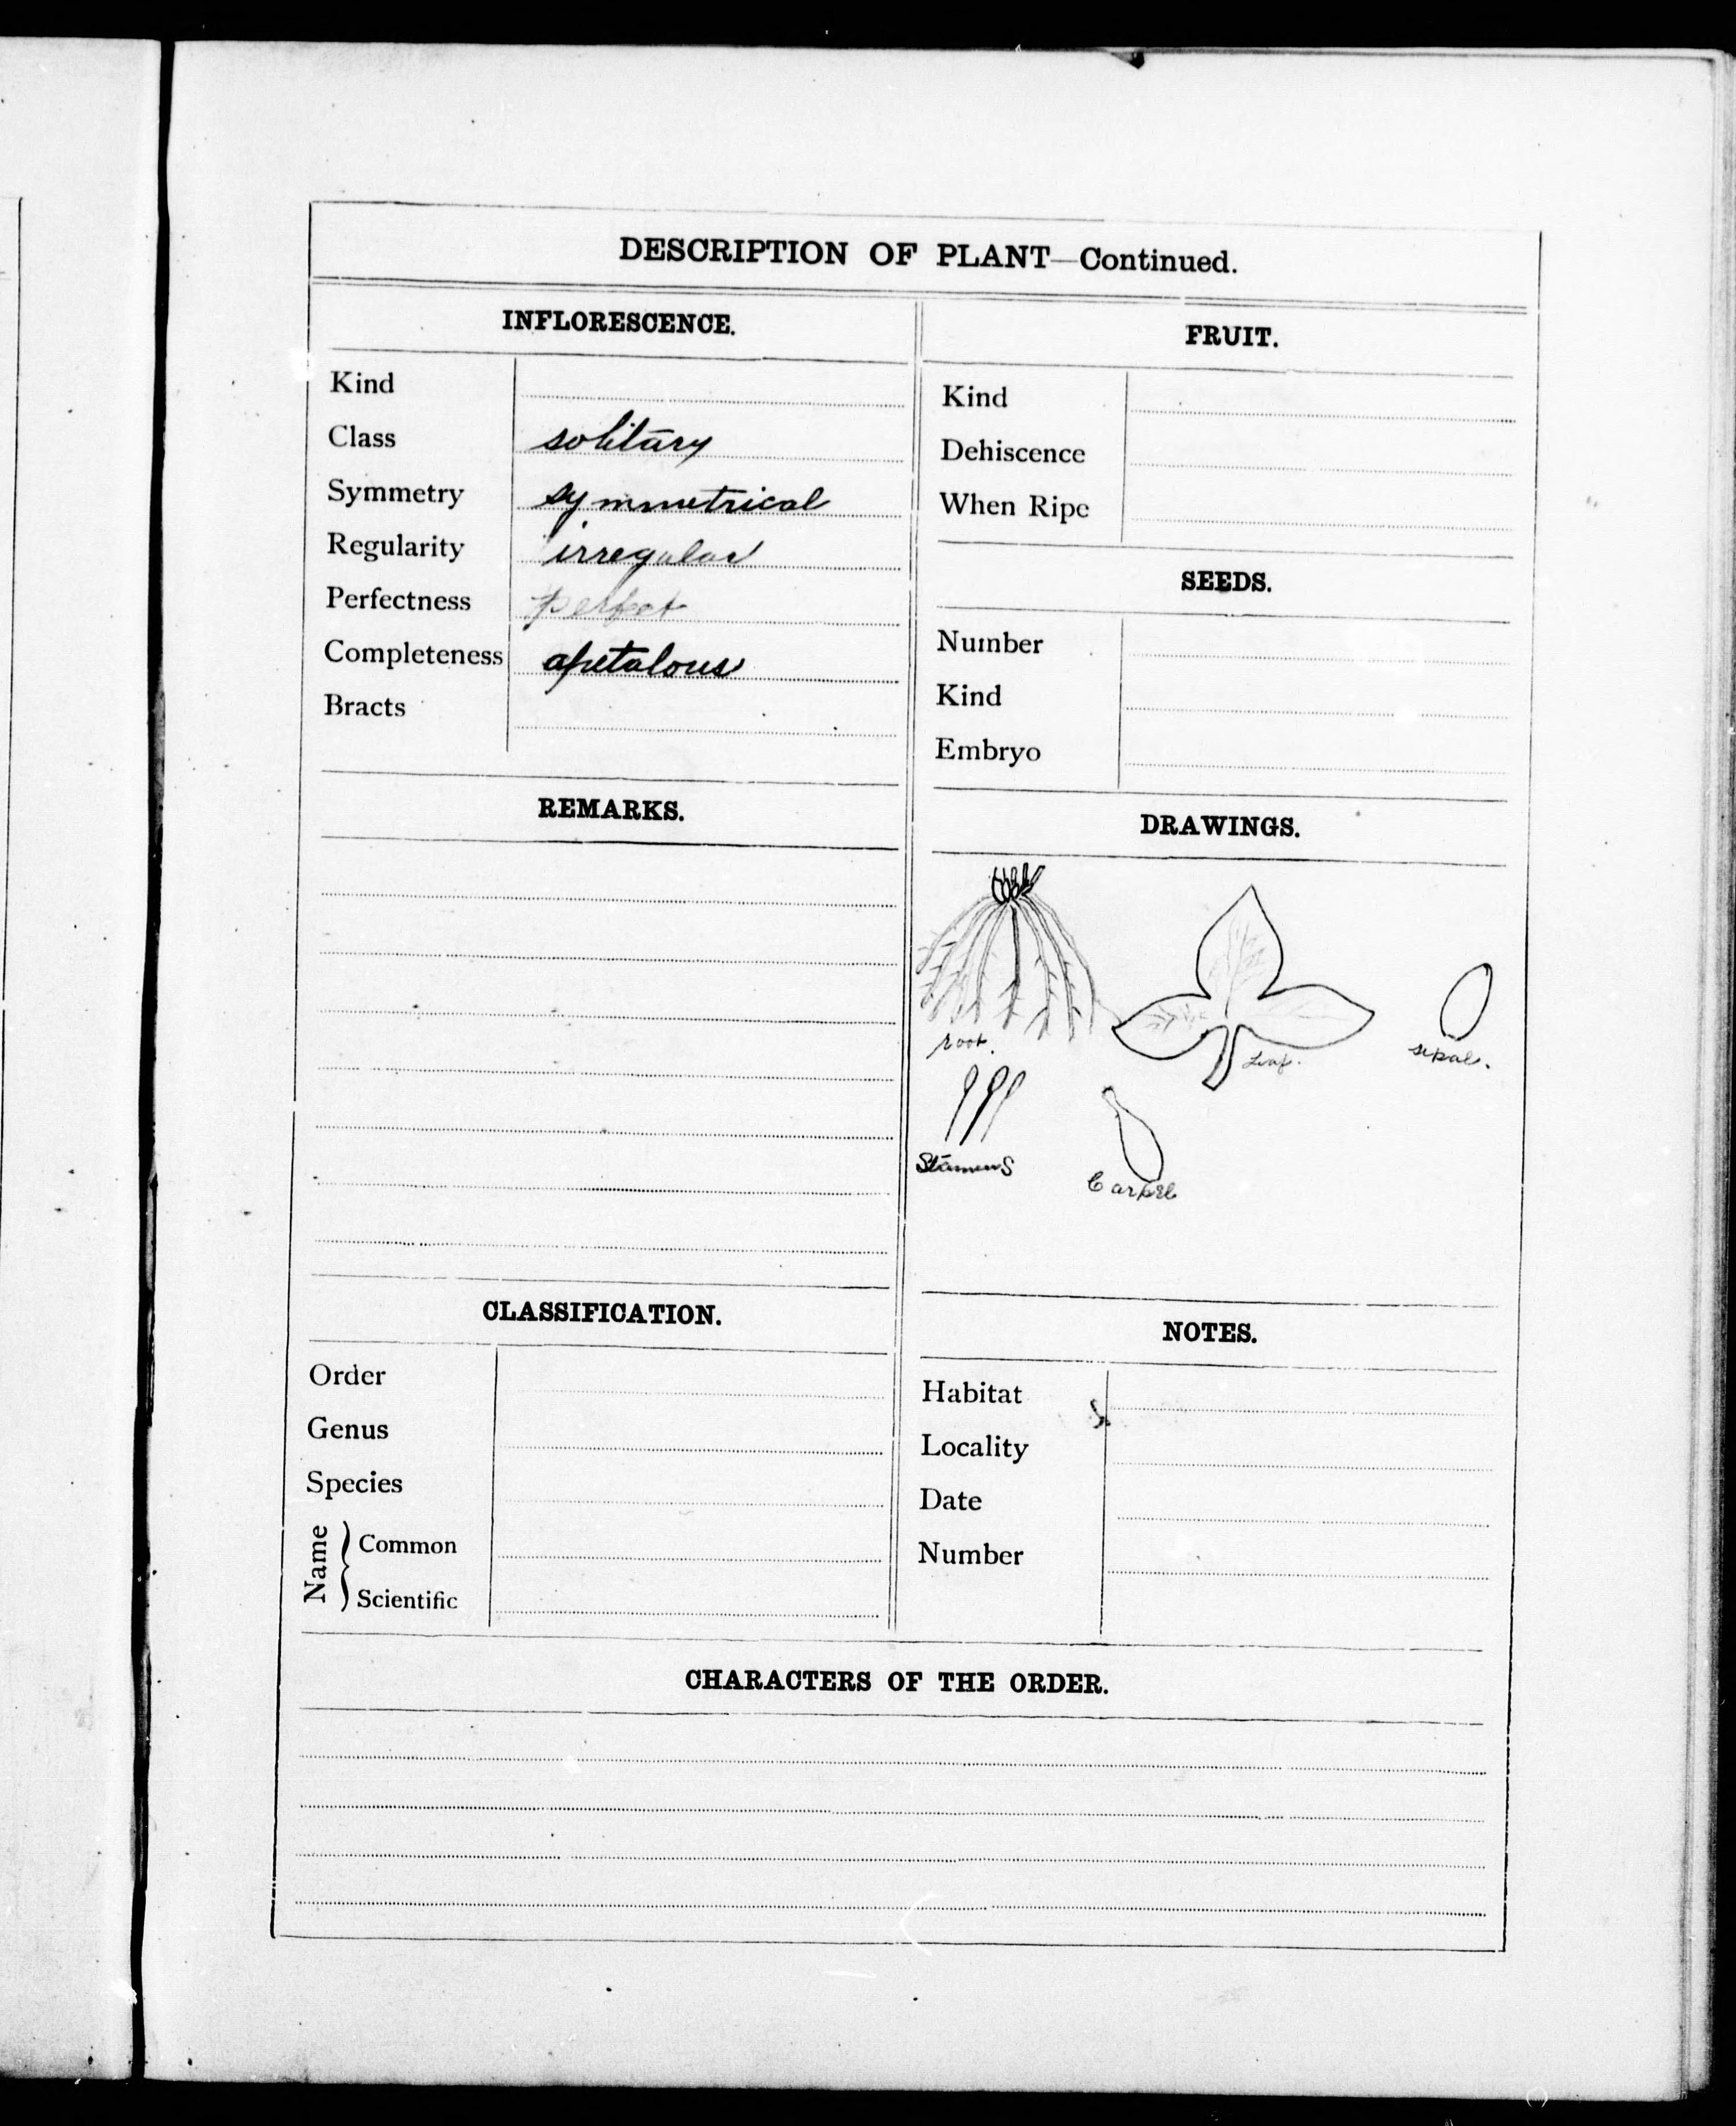 DESCRIPTION OF PLANT—Continued.
INFLORESCENCE.
Kind
Class solitary
Symmetry symmetrical
Regularity irregular
Perfectness perfect
Completeness apetalous
Bracts
REMARKS.
CLASSIFICATION.
Order
Genus
Species
Name
Common
Scientific
FRUIT.
Kind
Dehiscence
When Ripe
SEEDS.
Number
Kind
Embryo
DRAWINGS.
root.
Leaf.
sepal.
Stamens
Carpel
NOTES.
Habitat
Locality
Date
Number
CHARACTERS OF THE ORDER.